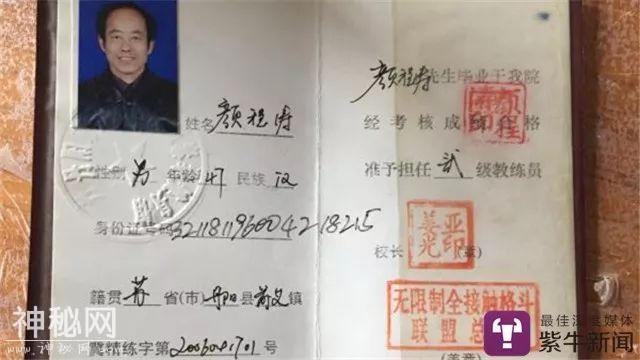 姓名 颜程涛
性别 男 年龄 民族 汉
身份证号码 321181196004218215
籍贯 苏 省(市) 丹阳 县 前艾 镇
练字第 号
颜程涛 先生毕业于我院
经考核成绩合格
准予担任 贰 级教练员
校长 (章)
姜亚光印
无限制全接触格斗
联盟总
(盖章)
神秘网
最佳深度媒体
紫牛新闻